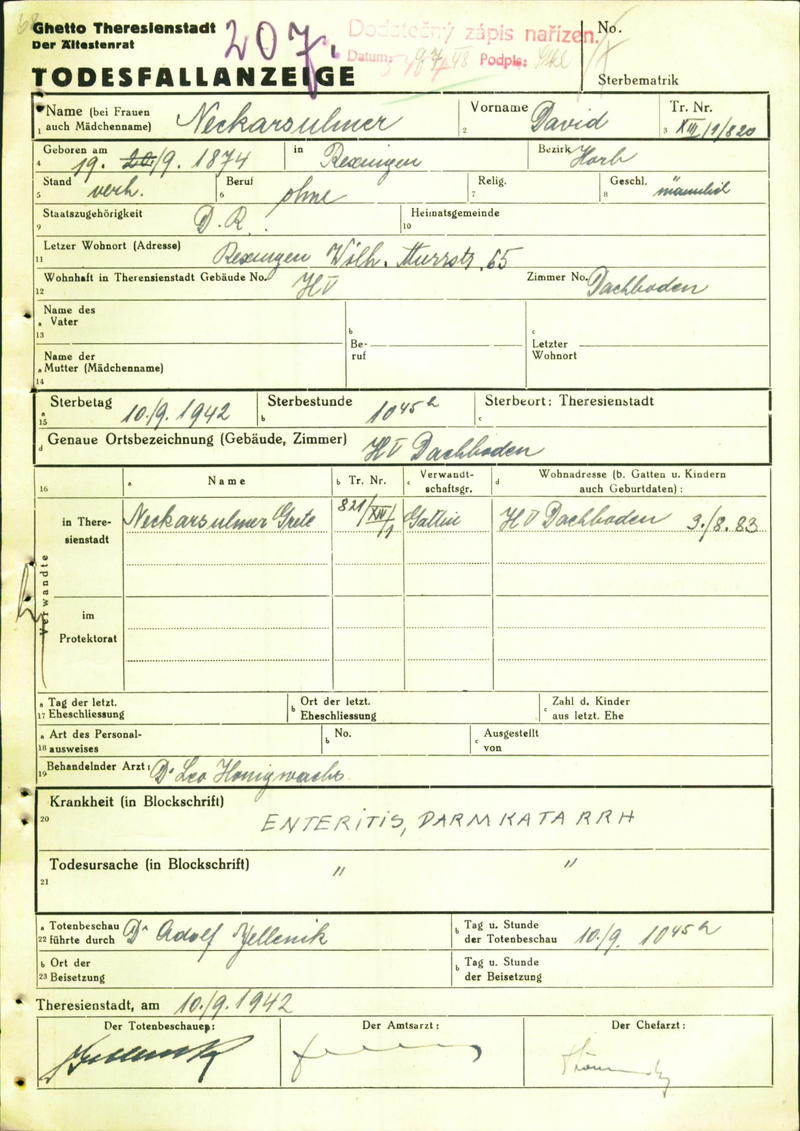 Ghetto Theresienstadt
Der Ältestenrat
TODESFALLANZEIGE
207.
Dodatečný zápis nařízen.
Datum: Podpis:
No.
Sterbematrik
Name (bei Frauen auch Mädchenname) Neckarsulmer
1
Vorname David
2
Tr. Nr. XIII/1/820
3
Geboren am 19. 20/9. 1874 in Rexingen Bezirk Horb
4
Stand verh. Beruf ohne Relig. Geschl. männlich
5 6 7 8
Staatszugehörigkeit D. R. Heimatsgemeinde
9 10
Letzer Wohnort (Adresse) Rexingen Wilh. Murrstr. 65
11
Wohnhaft in Therensienstadt Gebäude No. H V Zimmer No. Dachboden
12
Name des
a Vater
13
b
Beruf
c
Letzter
Wohnort
Name der
a Mutter (Mädchenname)
14
Sterbetag 10./9. 1942 Sterbestunde 10 45 h Sterbeort: Theresienstadt
a 15 b c
d Genaue Ortsbezeichnung (Gebäude, Zimmer) H V Dachboden
16 a Name b Tr. Nr. c Verwandtschaftsgr. d Wohnadresse (b. Gatten u. Kindern auch Geburtdaten):
Verwandte
in Theresienstadt Neckarsulmer Grete 821/XIII/1 Gattin H V Dachboden 3./8. 83
im
Protektorat
a Tag der letzt.
17 Eheschliessung
b Ort der letzt.
Eheschliessung
c Zahl d. Kinder
aus letzt. Ehe
a Art des Personal-
18 ausweises
b No.
c Ausgestellt
von
19 Behandelnder Arzt: Dr Leo Honigwachs
Krankheit (in Blockschrift)
20
ENTERITIS, DARMKATARRH
Todesursache (in Blockschrift) " "
21
a Totenbeschau
22 führte durch Dr Adolf Jellenik
b Tag u. Stunde
der Totenbeschau 10./9. 10 45 h
b Ort der
23 Beisetzung
b Tag u. Stunde
der Beisetzung
Theresienstadt, am 10./9. 1942
Der Totenbeschauer: Der Amtsarzt: Der Chefarzt: